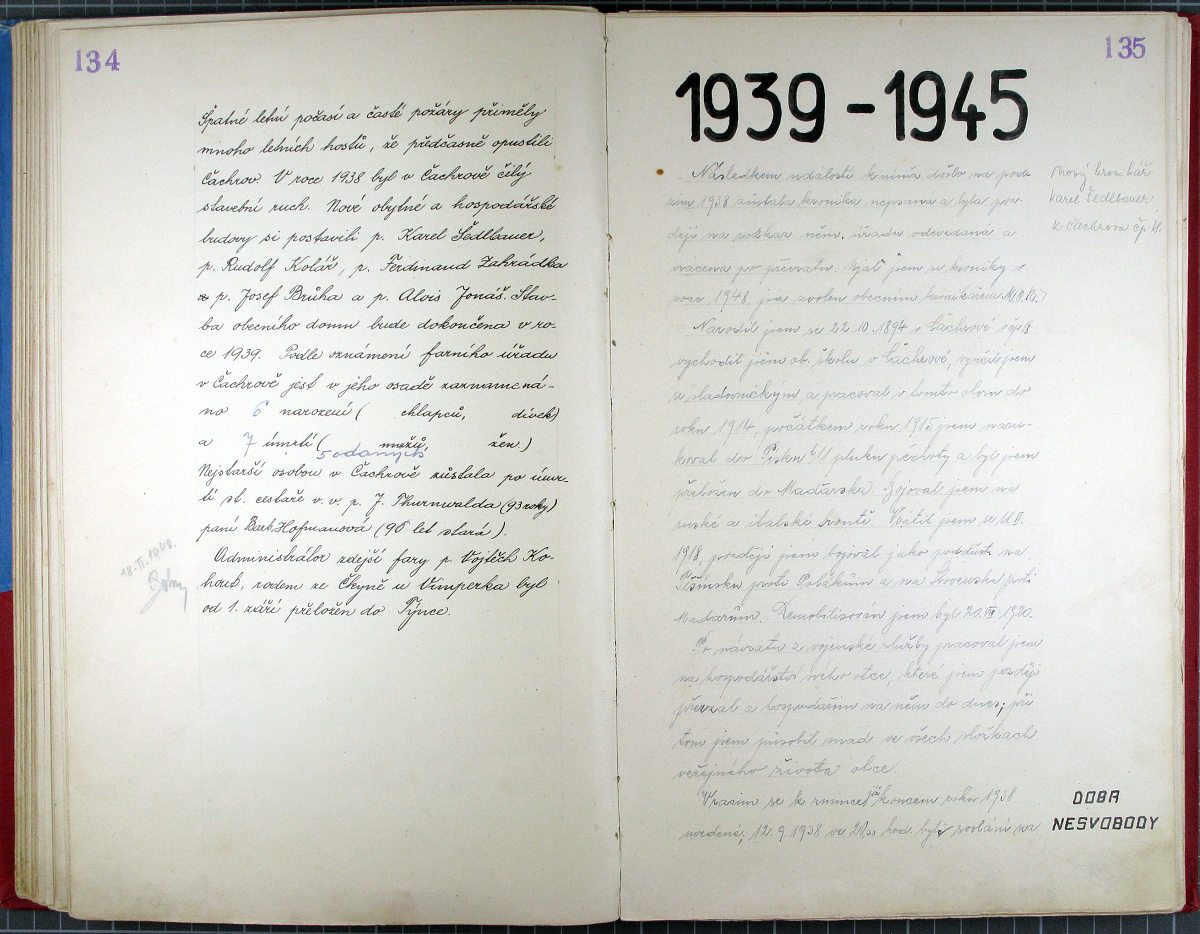 134
Špatné letní počasí a časté požáry přiměly
mnoho letních hostů, že předčasně opustili
Čachrov. V roce 1938 byl v Čachrově čilý
stavební ruch. Nové obytné a hospodářské
budovy si postavili p. Karel Šedlbauer,
p. Rudolf Kolář, p. Ferdinand Zahrádka
a p. Josef Brůha a p. Alois Jonáš. Stav-
ba obecního domu bude dokončena v ro-
ce 1939. Podle oznámení farního úřadu
v Čachrově jest v jeho osadě zaznamená-
no 6 narození ( chlapců, dívek)
a 7 úmrtí ( mužů, žen)
5 oddaných
Nejstarší osobou v Čachrově zůstala po úmr-
tí st. cestaře v. v. p. J. Thurnwalda (93 roky)
paní Barb. Hofmanová (90 let stará).
18. II. 1940.
Administrátor zdejší fary p. Vojtěch Ko-
hout, rodem ze Čkyně u Vimperka byl
od 1. září přeložen do Týnce.
135
1939-1945
Následkem událostí k nimž došlo na pod-
zim 1938 zůstala kronika nepsaná a byla poz-
ději na rozkaz něm. úřadu odevzdána a
vrácena po převratu. Ujal jsem se kroniky v
roce 1948, jsa zvolen obecním kronikářem M.O.K.)
nový kronikář
Karel Šedlbauer
z Čachrova čp.
Narodil jsem se 22. 10. 1894 v Čachrově v čp. 18
vychodil jsem ob. školu v Čachrově, vyučil jsem
se sladovnickým a pracoval v tomto oboru do
roku 1914, počátkem roku 1915 jsem naru-
koval do Písku k 11. pluku pěchoty a byl jsem
přeložen do Maďarska. Bojoval jsem na
ruské a italské frontě. Vrátil jsem se 11. II.
1918, později jsem bojoval jako poddůst. na
Těšínsku proti Polákům a na Slovensku proti
Maďarům. Demobilisován jsem byl 20. 1920.
Po návratu z vojenské služby pracoval jsem
na hospodářství svého otce, které jsem později
převzal a hospodařím na něm do dnes; při
tom jsem působil snad ve všech složkách
veřejného života obce.
Vracím se k zmínce již koncem roku 1938
uvedené, 12. 9. 1938 ve hod. byli svoláni na
DOBA
NESVOBODY